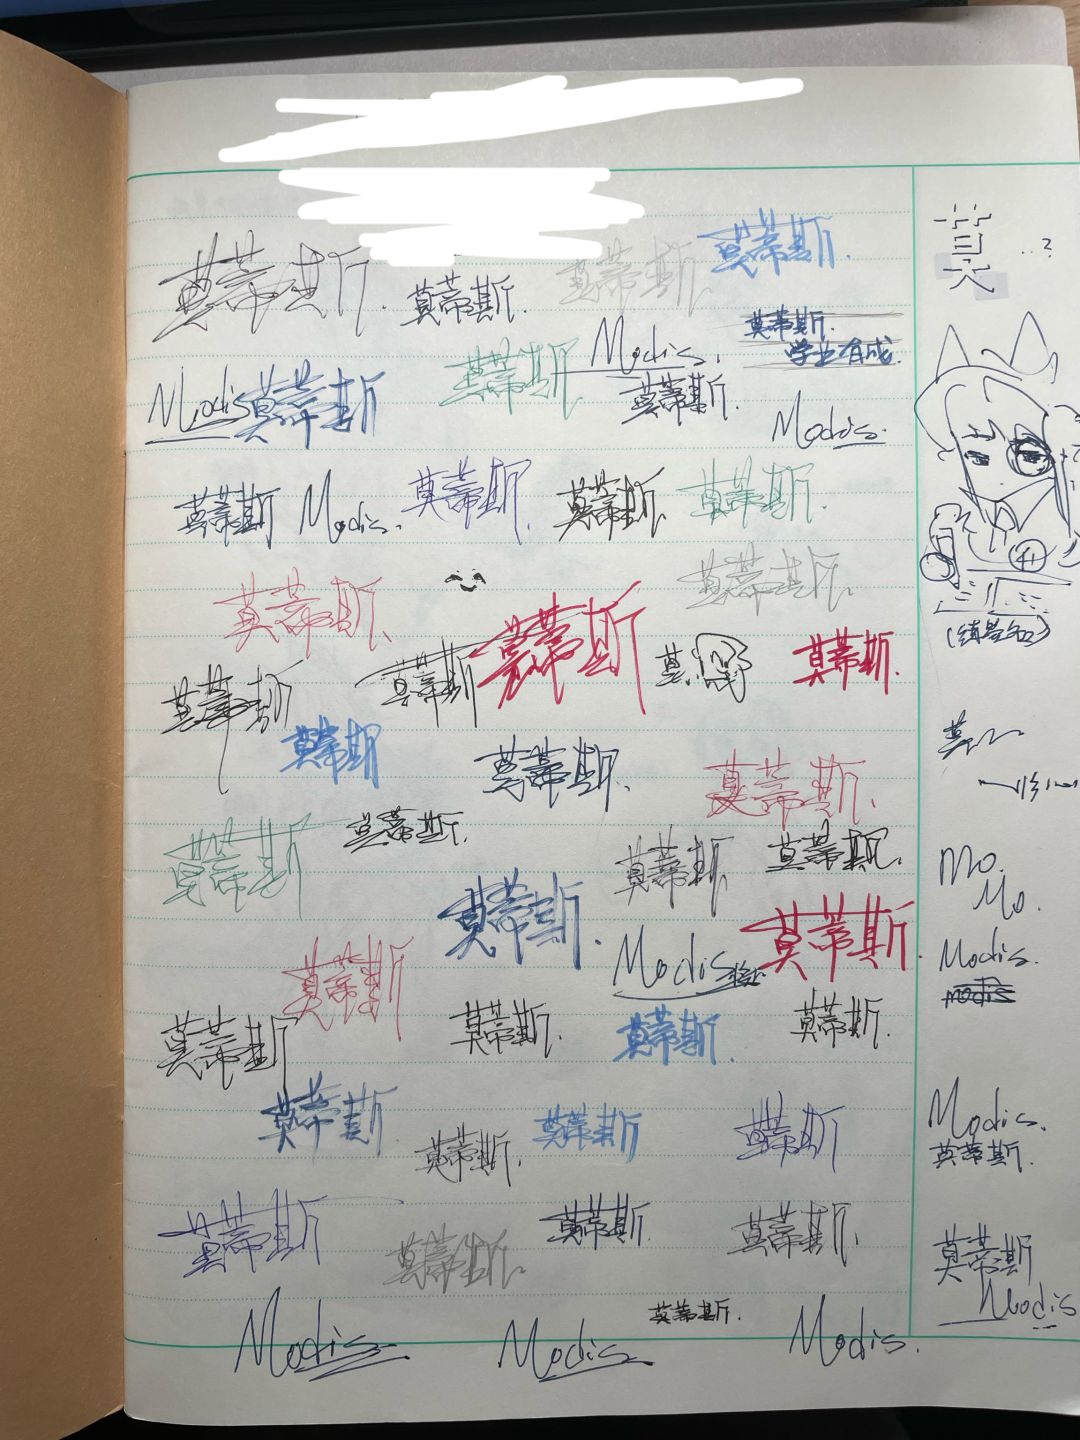 莫蒂斯.
莫蒂斯.
莫蒂斯
莫蒂斯.
莫
...?
莫蒂斯.
学业有成.
Modis.
莫蒂斯.
Modis
莫蒂斯
莫蒂斯
Modis.
莫蒂斯
Modis.
莫蒂斯
莫蒂斯.
莫蒂斯.
莫蒂斯.
莫蒂斯.
莫蒂斯
莫蒂斯.
莫蒂斯
莫蒂斯
莫.
莫蒂斯.
莫蒂斯
莫蒂斯.
莫蒂斯.
莫蒂斯
莫蒂斯.
莫蒂斯
莫蒂斯.
莫蒂斯.
Modis
莫蒂斯.
莫蒂斯
莫蒂斯
莫蒂斯.
莫蒂斯.
莫蒂斯.
莫蒂斯
莫蒂斯.
莫蒂斯
莫蒂斯
莫蒂斯
莫蒂斯.
莫蒂斯
莫蒂斯.
Modis
Modis
莫蒂斯.
Modis.
Mo.
Mo.
Modis.
modis
Modis.
莫蒂斯.
莫蒂斯
Modis